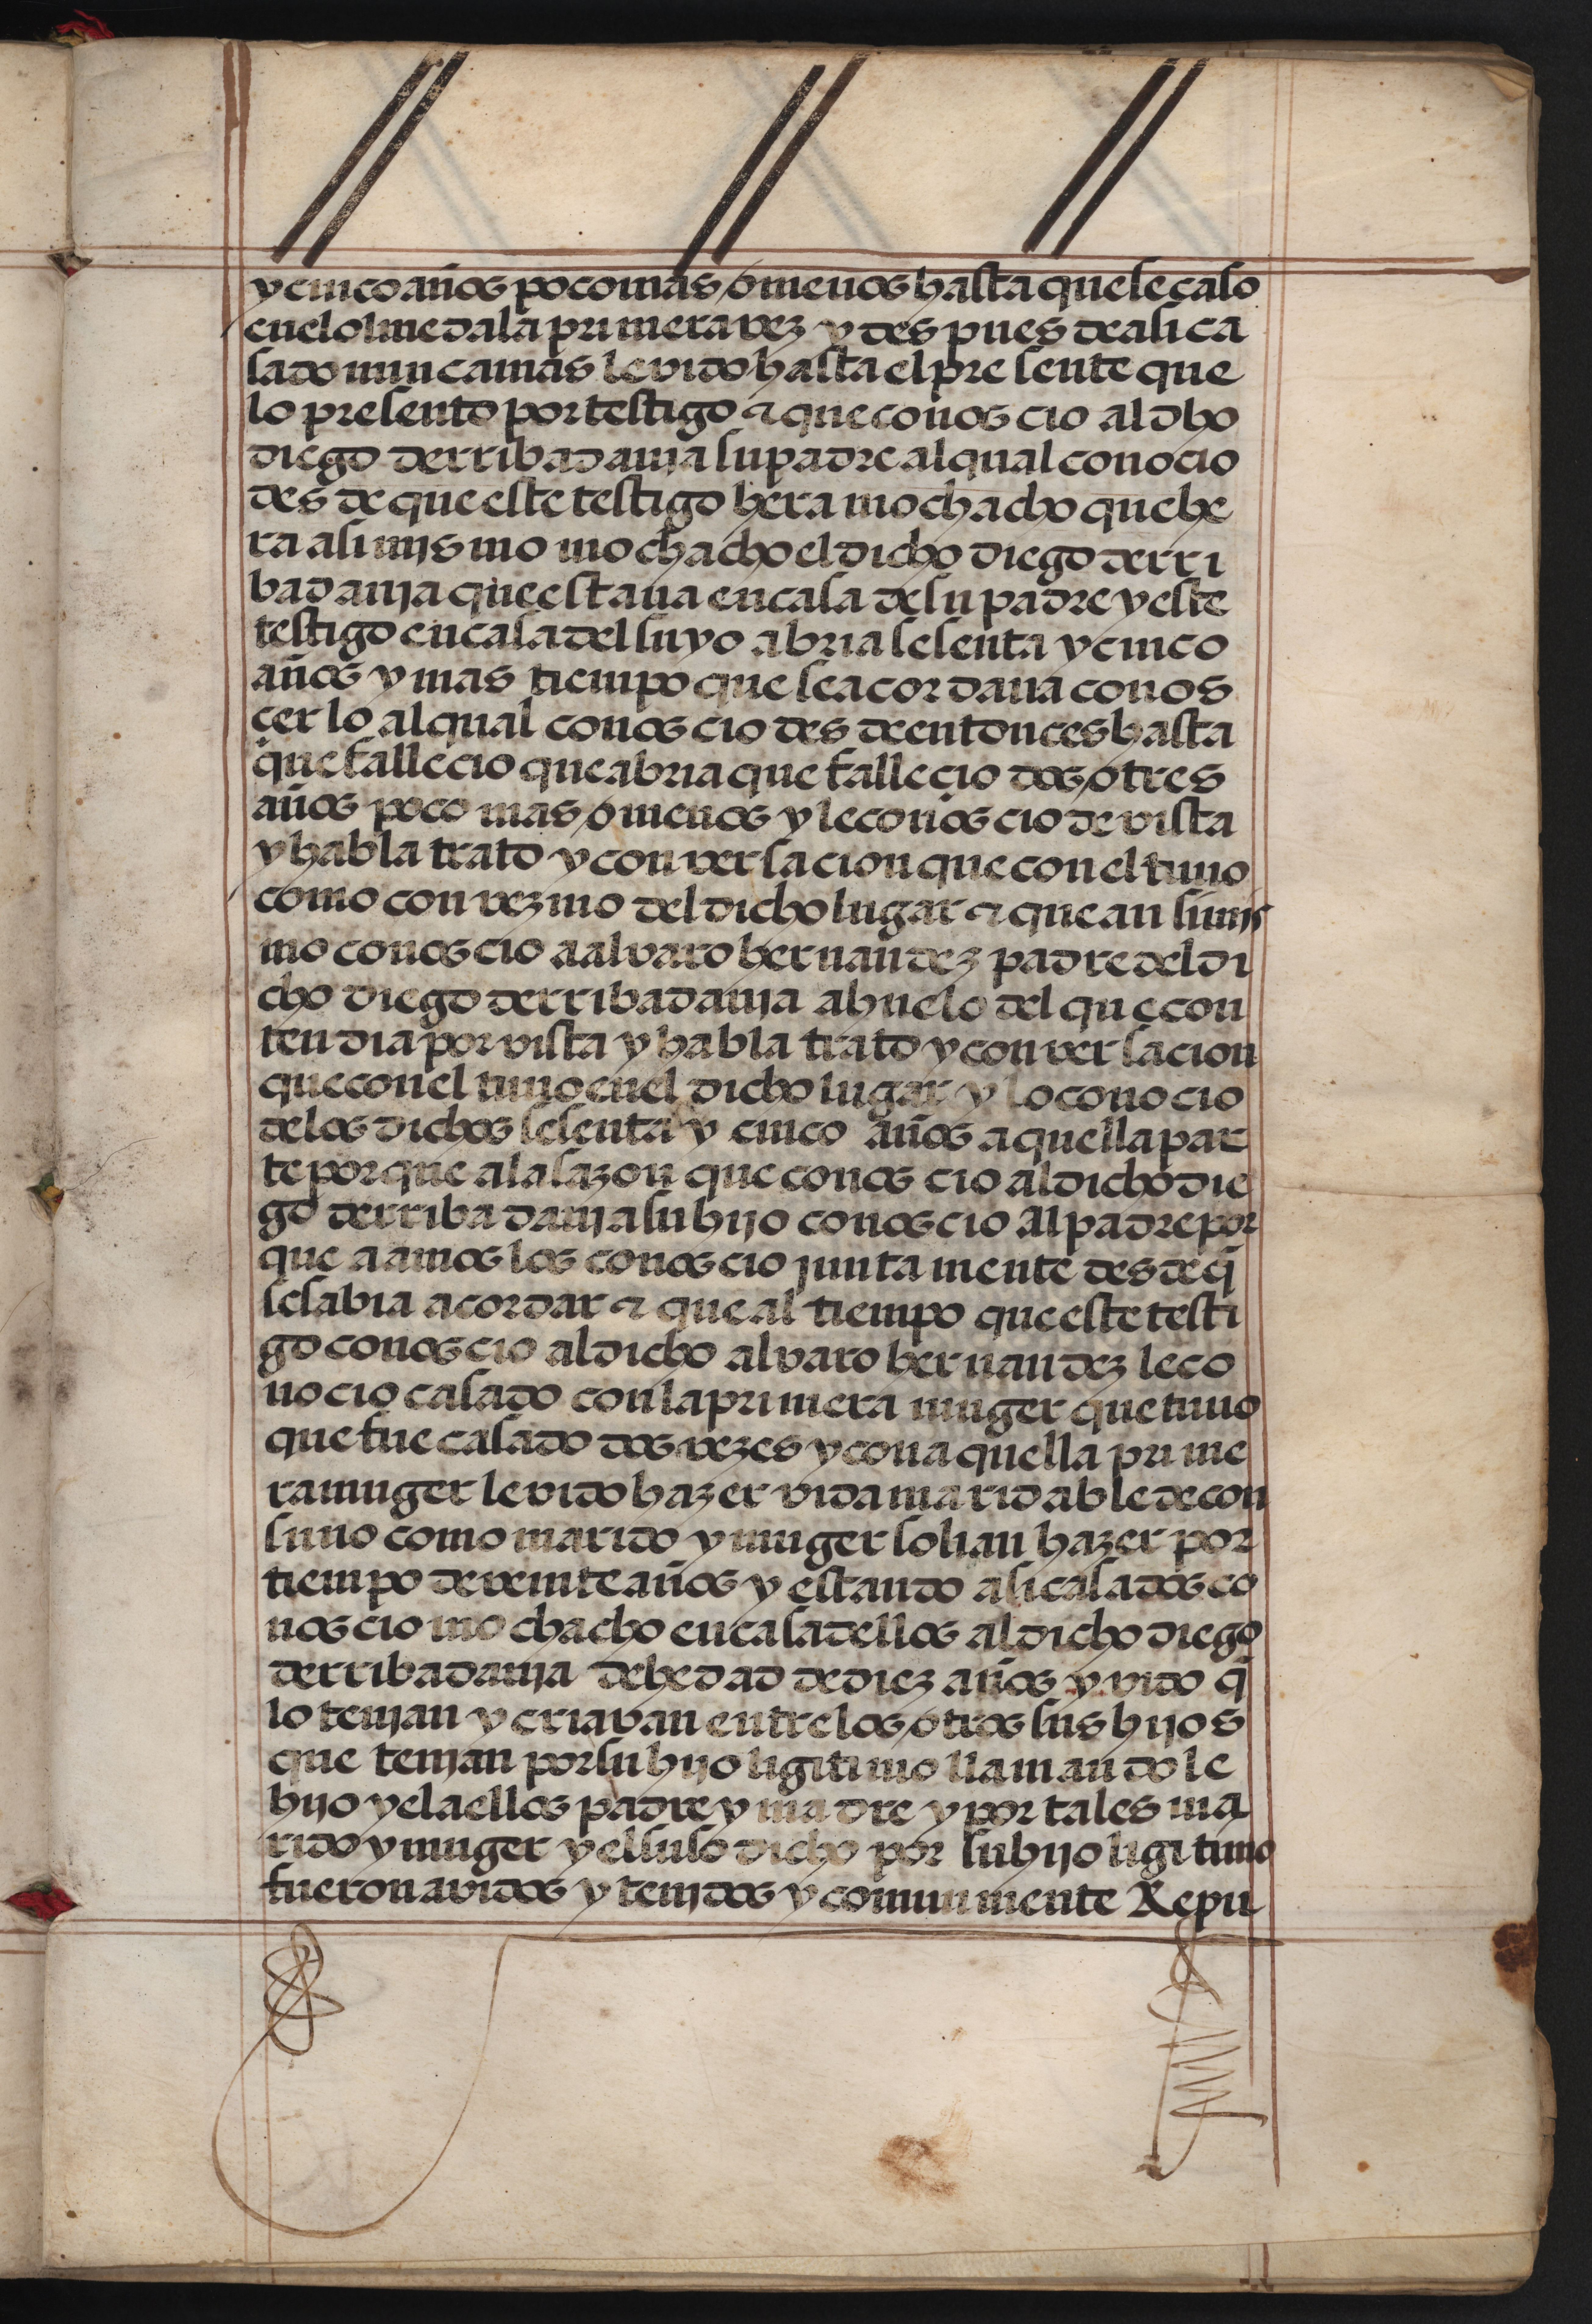 y cinco años poco mas o menos hasta que se caso
en el olmeda la primera vez y despues de asi ca
sado nunca mas le vido hasta el presente que
lo presento por testigo τ que conos cio al dho
diego derribadania su padre al qual conocio
desde que este testigo hera mochacho que he
ra asi mismo mochacho el dicho diego derri
badania que estaua en casa de su padre y este
testigo en casa del suyo abria sesenta y cinco
años y mas tiempo que se acordaua conos
cerlo al qual conoscio desde entonces hasta
que fallecio que abria que fallecio dos o tres
años poco mas o menos y le conoscio de vista
y habla trato y conversacion que con el tuuo
como con vezino del dicho lugar τ que an simis
mo conoscio a alvaro hernandez padre del di
cho diego derribadania ahuelo del que con
tendia por vista y habla trato y conversacion
que con el tuuo en el dicho lugar y lo conocio
de los dichos sesenta y cinco años aquella par
te porque a la sazon que conoscio al dicho die
go derribadania su hijo conoscio al padre por
que a amos los conoscio juntamente desde q̃
se sabia acordar τ que al tiempo que este testi
go conoscio al dicho alvaro hernandez le co
nocio casado con la primera muger que tuuo
que fue casado dos vezes y con aquella prime
ra muger le vido hazer vida maridable de con
suno como marido y muger solian hazer por
tiempo de veinte años y estando asi casados co
noscio mochacho en casa dellos al dicho diego
derribadania de hedad de diez años y vido q̃
lo tenian y criavan entre los otros sus hijos
que tenian por su hijo ligitimo llamandole
hijo y el a ellos padre y madre y por tales ma
rido y muger y el suso dicho por su hijo ligitimo
fueron avidos y tenidos y comunmente Repu